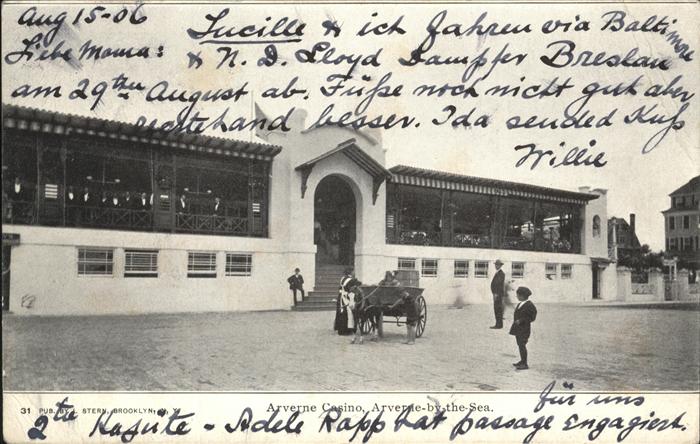 Aug 15-06
Liebe Mama:
Lucille & ich fahren via Baltimore
& N. D. Lloyd Dampfer Breslau
am 29ten August ab. Füße noch nicht gut aber
rechte Hand besser. Ida sended Kuß
Willie
31 PUB. BY L. STERN, BROOKLYN, N. Y.
Arverne Casino, Arverne-by-the-Sea.
für uns
2te Kajüte - Adele Rapp hat passage engagiert.